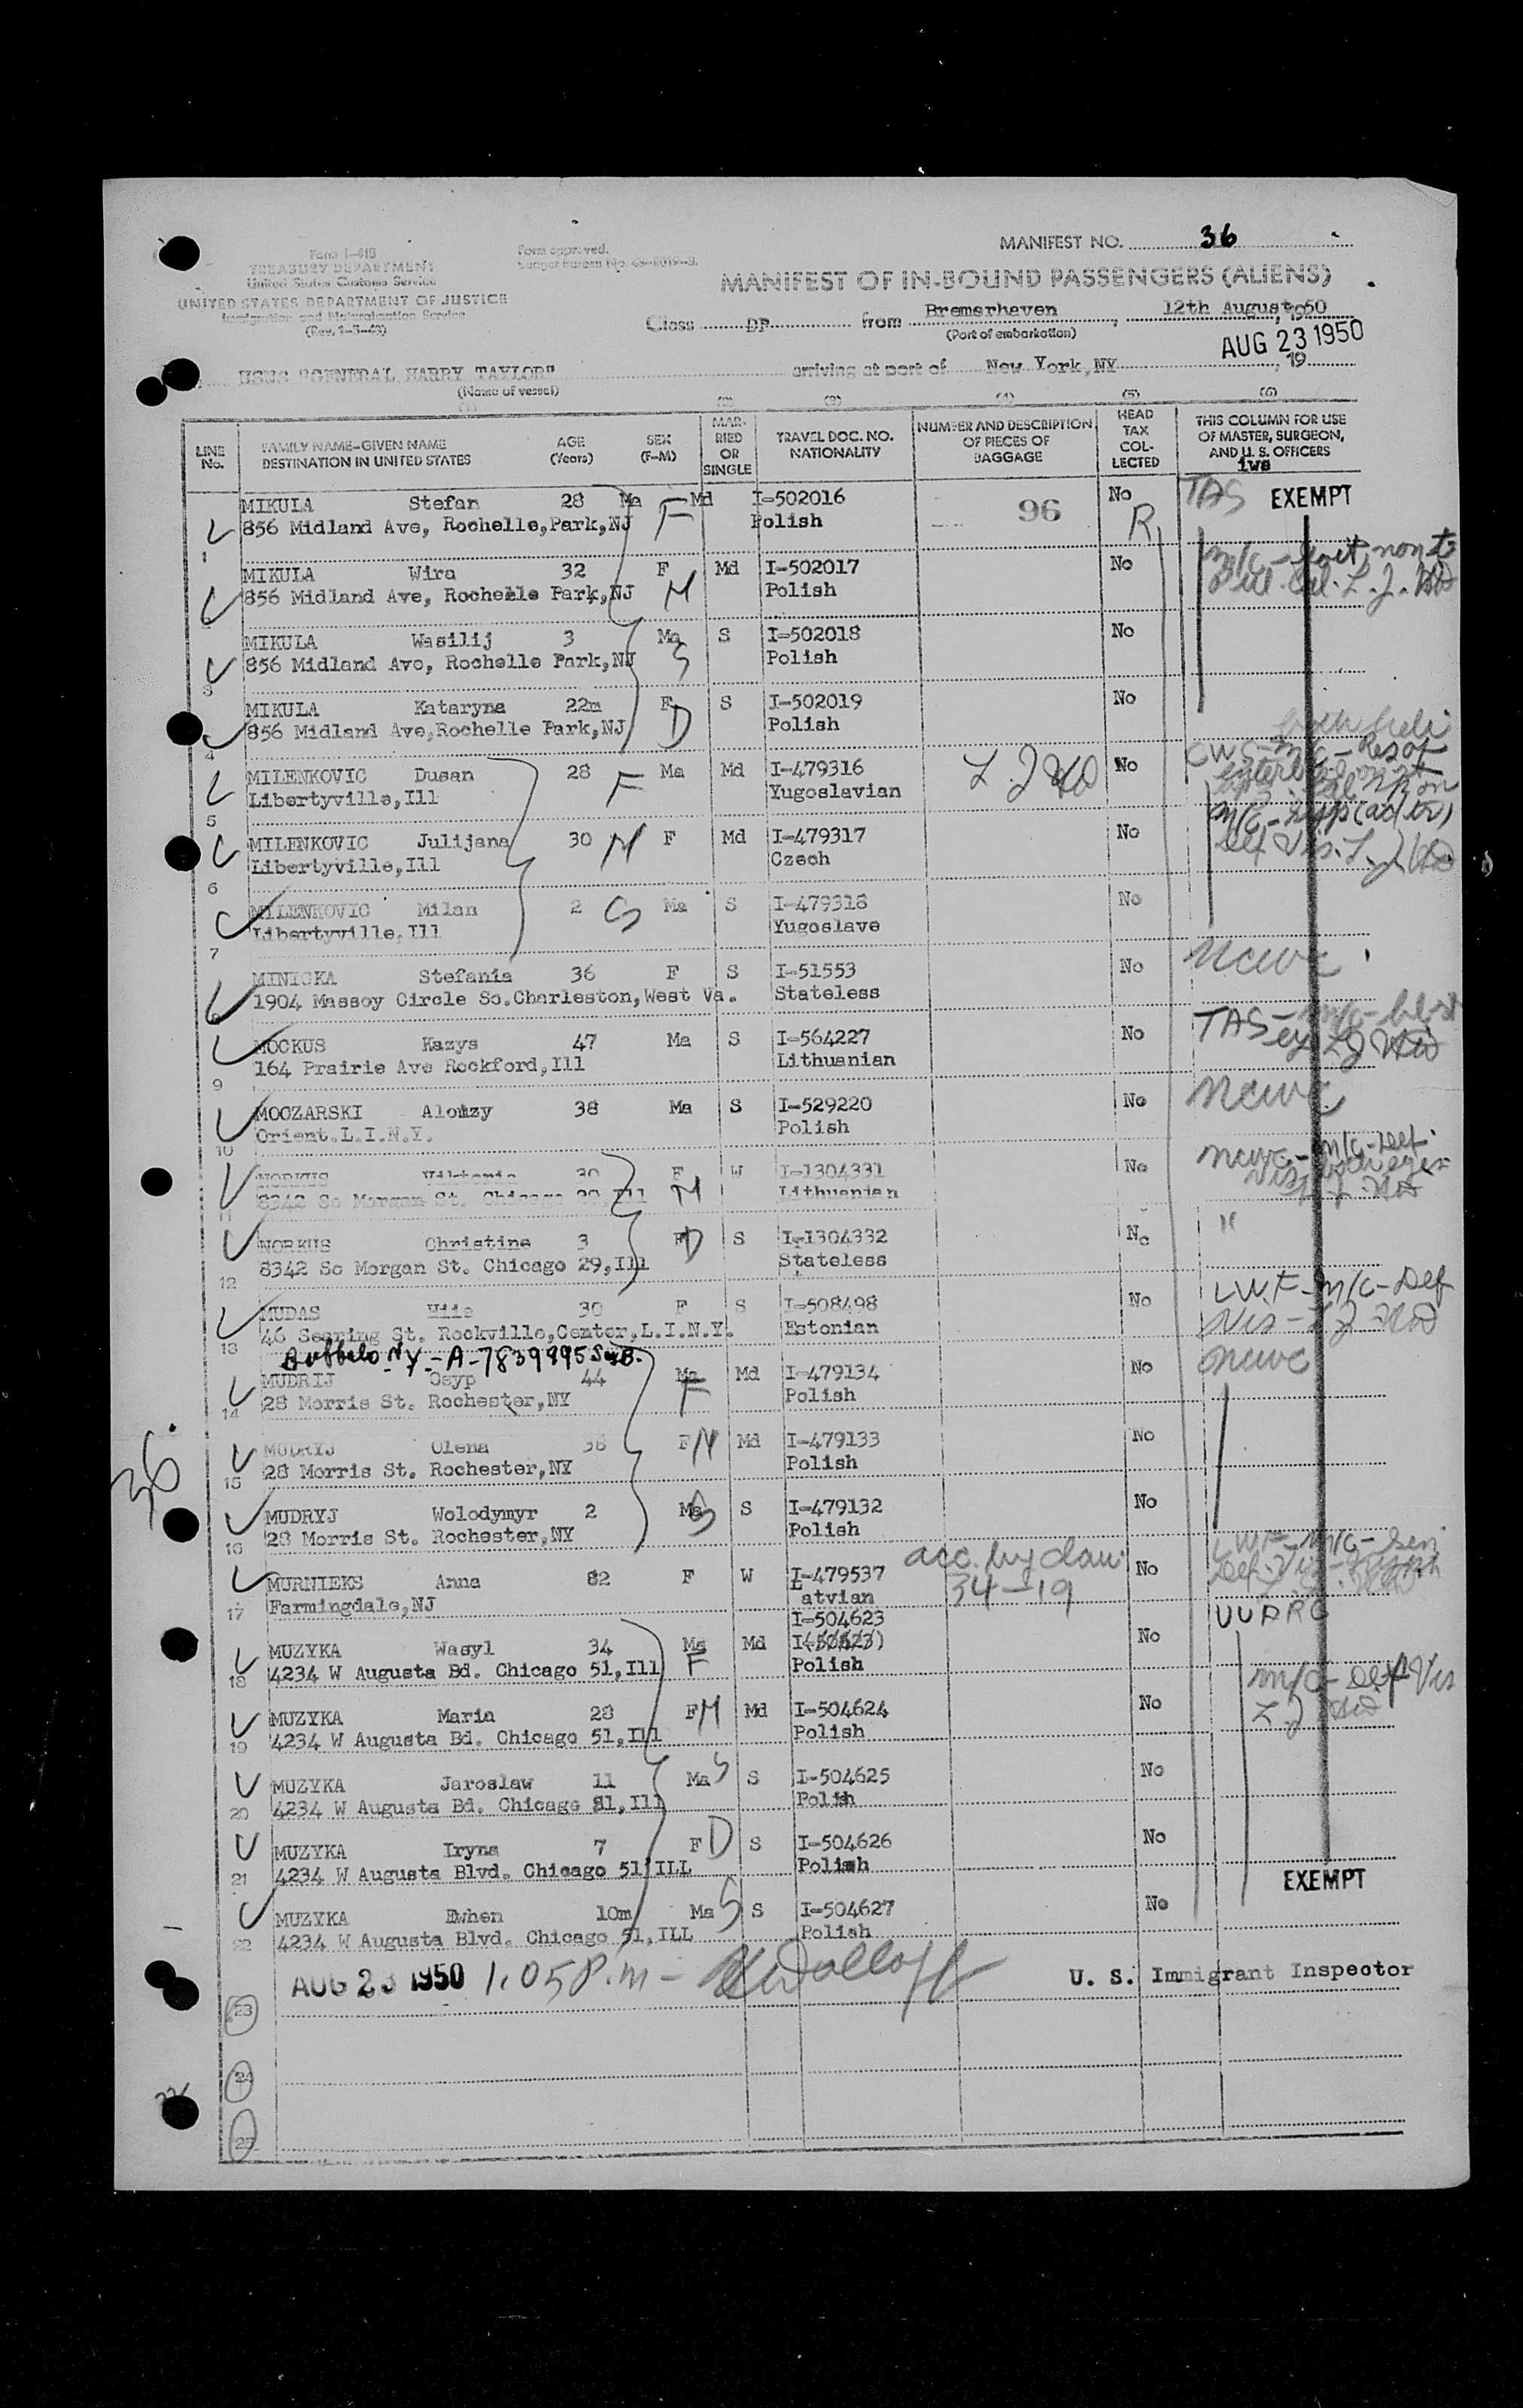 MANIFEST NO. 36
Form I-418
TREASURY DEPARTMENT
United States Customs Service
UNITED STATES DEPARTMENT OF JUSTICE
Immigration and Naturalization Service
Form approved.
MANIFEST OF IN-BOUND PASSENGERS (ALIENS)
Class DP from Bremerhaven, 12th August 1950
(Port of embarkation)
AUG 23 1950
USNS "GENERAL HARRY TAYLOR" arriving at port of New York, NY, 19
(Name of vessel)
(3) (4) (5) (6)
LINE No. FAMILY NAME-GIVEN NAME DESTINATION IN UNITED STATES AGE (Years) SEX (F-M) MARRIED OR SINGLE TRAVEL DOC. NO. NATIONALITY NUMBER AND DESCRIPTION OF PIECES OF BAGGAGE HEAD TAX COL-LECTED THIS COLUMN FOR USE OF MASTER, SURGEON, AND U. S. OFFICERS
iws
MIKULA Stefan 28 Ma Md I-502016 96 No TAS EXEMPT
1 856 Midland Ave, Rochelle,Park,NJ F Polish R
MIKULA Wira 32 F Md I-502017 No
856 Midland Ave, Rochelle Park,NJ M Polish
MIKULA Wasilij 3 Ma S I-502018 No
3 856 Midland Ave, Rochelle Park,NJ S Polish
MIKULA Kataryna 22m F S I-502019 No
4 856 Midland Ave,Rochelle Park,NJ D Polish
MILENKOVIC Dusan 28 F Ma Md I-479316 No
5 Libertyville,Ill Yugoslavian
MILENKOVIC Julijana 30 M F Md I-479317 No
6 Libertyville,Ill Czech
MILENKOVIC Milan 2 S Ma S I-479318 No
7 Libertyville,Ill Yugoslave
MINICKA Stefania 36 F S I-51553 No NCWC
8 1904 Massoy Circle So.Charleston,West Va. Stateless
MOCKUS Kazys 47 Ma S I-564227 No TAS
9 164 Prairie Ave Rockford,Ill Lithuanian
MOCZARSKI Alomzy 38 Ma S I-529220 No NCWC
10 Orient.L.I.N.Y. Polish
NORKUS Viktoria 30 F W I-1304331 No NCWC - M/C - Def.
11 8342 So Morgan St. Chicago 29,Ill M Lithuanian
NORKUS Christine 3 F D S I-1304332 No "
12 8342 So Morgan St. Chicago 29,Ill Stateless
MUDAS Miie 30 F S I-508498 No LWF - M/C - Def
13 46 Searing St. Rockville,Center,L.I.N.Y. Estonian Vis
Buffalo NY - A-7839995
MUDRIJ Osyp 44 Ma Md I-479134 No NCWC
14 28 Morris St. Rochester,NY F Polish
MUDRYJ Olena 38 F M Md I-479133 No
15 28 Morris St. Rochester,NY Polish
36
MUDRYJ Wolodymyr 2 Ma S S I-479132 No
16 28 Morris St. Rochester,NY Polish
MURNIEKS Anna 82 F W I-479537 acc. by dau. No LWF - M/C - Sen
17 Farmingdale,NJ Latvian 34-19
I-504623
MUZYKA Wasyl 34 Ma Md I(50523) No
18 4234 W Augusta Bd. Chicago 51,Ill F Polish
MUZYKA Maria 28 F M Md I-504624 No M/C - Def Vis
19 4234 W Augusta Bd. Chicago 51,Ill Polish
MUZYKA Jaroslaw 11 Ma S S I-504625 No
20 4234 W Augusta Bd. Chicago 51,Ill Polish
MUZYKA Iryna 7 F D S I-504626 No
21 4234 W Augusta Blvd. Chicago 51,ILL Polish EXEMPT
MUZYKA Ewhen 10m Ma S S I-504627 No
22 4234 W Augusta Blvd. Chicago 51,ILL Polish
AUG 23 1950 1.05 P.m - U. S. Immigrant Inspector
23
24
25